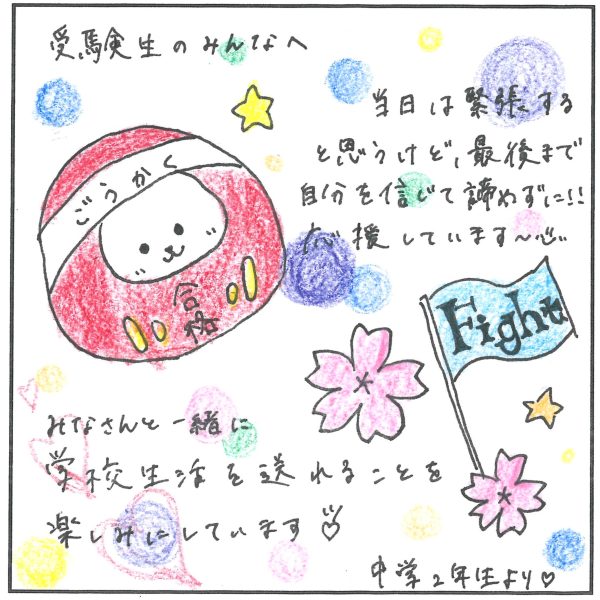 受験生のみんなへ
当日は緊張する
と思うけど、最後まで
自分を信じて諦めずに!!
応援しています〜
ごうかく
合格
Fight
みなさんと一緒に
学校生活を送れることを
楽しみにしています♡
中学2年生より♡